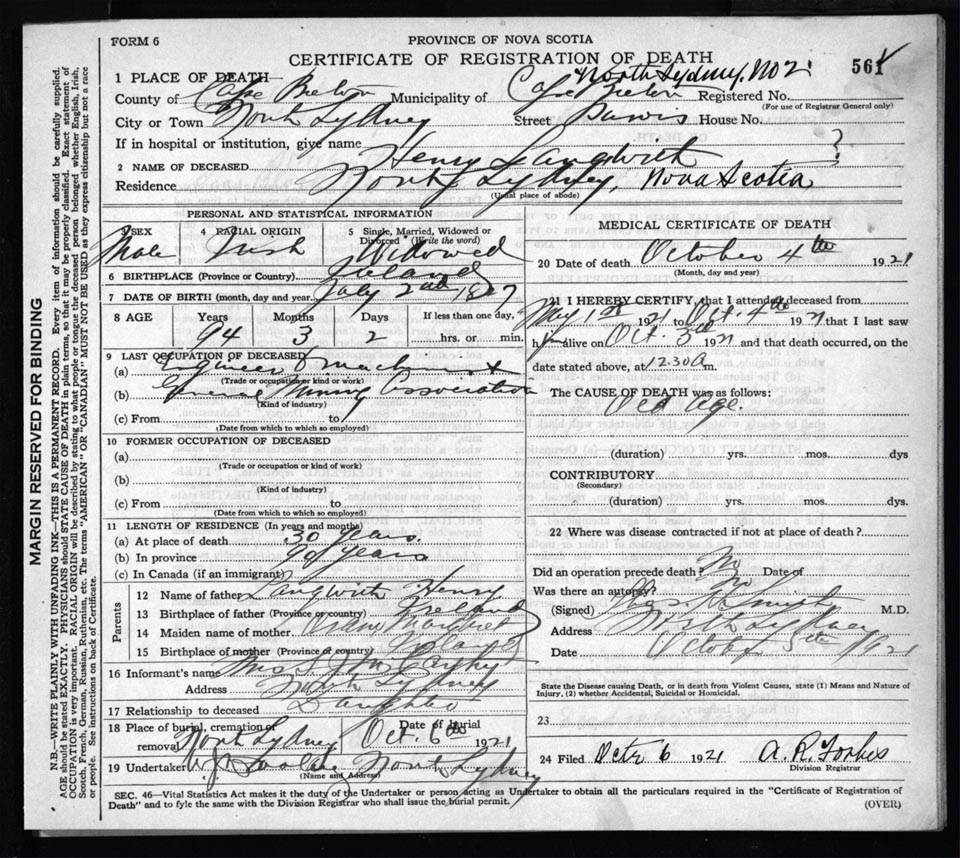 FORM 6
PROVINCE OF NOVA SCOTIA
CERTIFICATE OF REGISTRATION OF DEATH
561
North Sydney, No 2
1 PLACE OF DEATH
County of Cape Breton Municipality of Cape Breton Registered No.
(For use of Registrar General only)
City or Town North Sydney Street House No.
If in hospital or institution, give name
2 NAME OF DECEASED Henry Langwith
Residence North Sydney, Nova Scotia
(Usual place of abode)
PERSONAL AND STATISTICAL INFORMATION
3 SEX Male
4 RACIAL ORIGIN Irish
5 Single, Married, Widowed or Divorced (Write the word) Widowed
6 BIRTHPLACE (Province or Country) Ireland
7 DATE OF BIRTH (month, day and year) July 2nd 1827
8 AGE Years Months Days If less than one day,
94 3 2 hrs. or min.
9 LAST OCCUPATION OF DECEASED
(a) Engineer & machinist
(Trade or occupation or kind or work)
(b) General Mining Association
(Kind of industry)
(c) From to
(Date from which to which so employed)
10 FORMER OCCUPATION OF DECEASED
(a)
(Trade or occupation or kind of work)
(b)
(Kind of industry)
(c) From to
(Date from which to which so employed)
11 LENGTH OF RESIDENCE (In years and months)
(a) At place of death 30 years.
(b) In province 90 years
(c) In Canada (if an immigrant)
Parents
12 Name of father Langwith Henry
13 Birthplace of father (Province or country) Ireland
14 Maiden name of mother Margaret
15 Birthplace of mother (Province of country) Ireland
16 Informant's name Mrs
Address North Sydney
17 Relationship to deceased Daughter
18 Place of burial, cremation or removal North Sydney Date of burial Oct. 6th 1921
19 Undertaker North Sydney
(Name and Address)
MEDICAL CERTIFICATE OF DEATH
20 Date of death October 4th 1921
(Month, day and year)
21 I HEREBY CERTIFY, that I attended deceased from
May 1st 1921 to Oct. 4th 1921 that I last saw
him alive on Oct. 3rd 1921 and that death occurred, on the
date stated above, at 12.30 A m.
The CAUSE OF DEATH was as follows:
Old Age.
(duration) yrs. mos. dys
CONTRIBUTORY
(Secondary)
(duration) yrs. mos. dys.
22 Where was disease contracted if not at place of death?
Did an operation precede death No Date of
Was there an autopsy? No
(Signed) M.D.
Address North Sydney
Date October 5th 1921
State the Disease causing Death, or in death from Violent Causes, state (1) Means and Nature of
Injury, (2) whether Accidental, Suicidal or Homicidal.
23
24 Filed Octr 6 1921 A. R. Forbes
Division Registrar
SEC. 46—Vital Statistics Act makes it the duty of the Undertaker or person acting as Undertaker to obtain all the particulars required in the "Certificate of Registration of
Death" and to fyle the same with the Division Registrar who shall issue the burial permit.
(OVER)
MARGIN RESERVED FOR BINDING
N.B.—WRITE PLAINLY WITH UNFADING INK—THIS IS A PERMANENT RECORD. Every item of information should be carefully supplied.
AGE should be stated EXACTLY. PHYSICIANS should STATE CAUSE OF DEATH in plain terms, so that it may be properly classified. Exact statement of
OCCUPATION is very important. RACIAL ORIGIN will be described by stating to what people or tongue the deceased person belonged whether English, Irish,
Scotch, French, German, Russian, Ruthenian, etc. The terms "AMERICAN" OR "CANADIAN" MUST NOT BE USED as they express citizenship but not a race
or people. See instructions on back of Certificate.